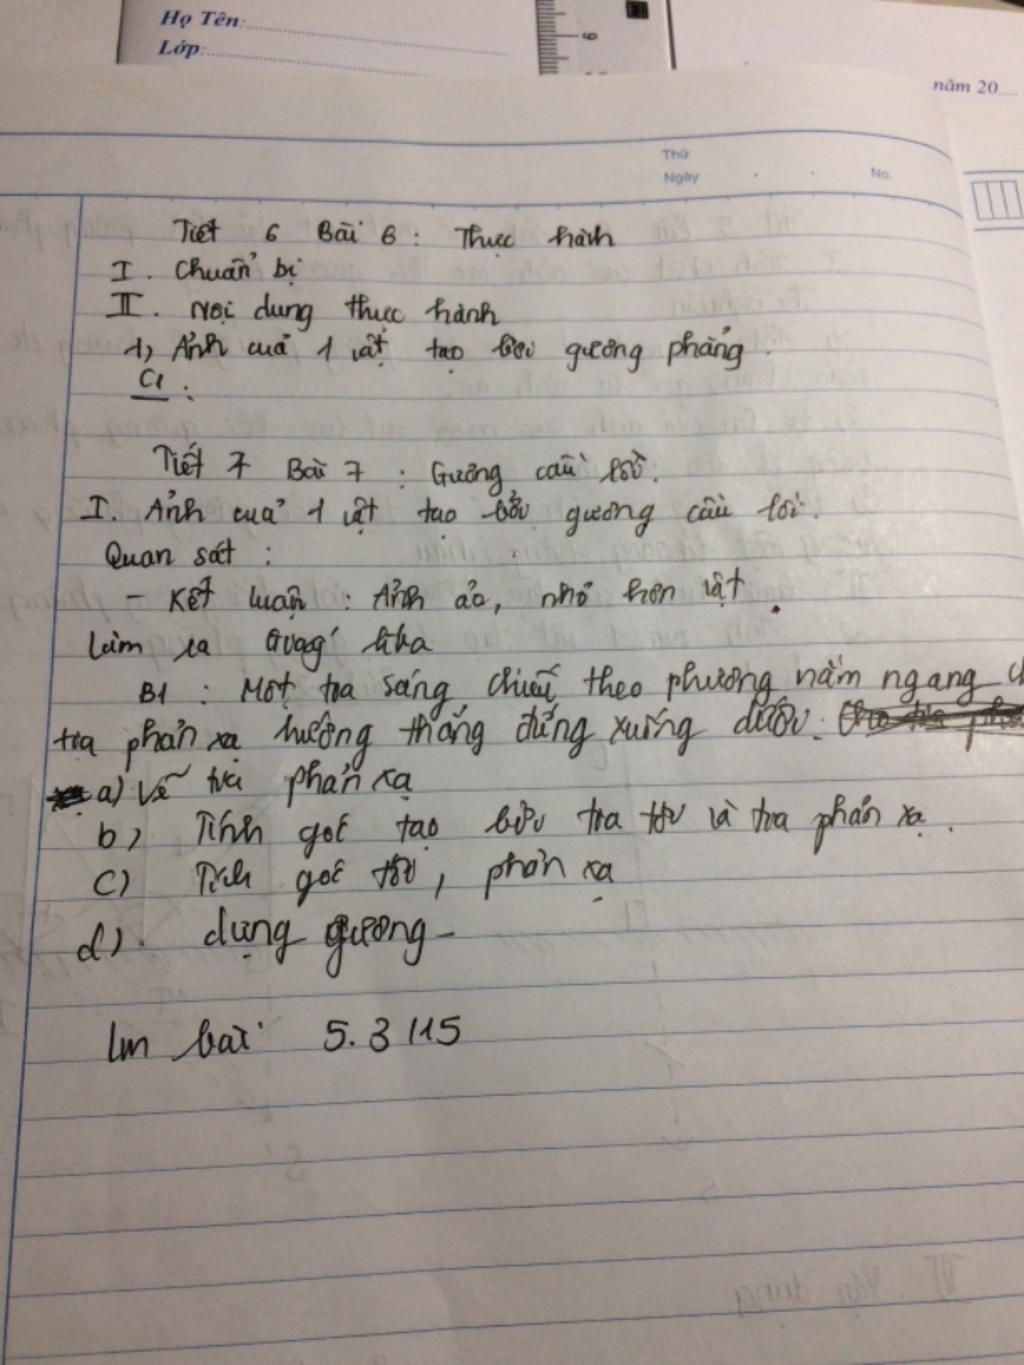 Họ Tên:
Lớp:
năm 20
Thứ
Ngày
No.
Tiết 6 Bài 6 : Thực hành
I. Chuẩn bị
II. Nội dung thực hành
1) Ảnh của 1 vật tạo bởi gương phẳng
C1 :
Tiết 7 Bài 7 : Gương cầu lồi.
I. Ảnh của 1 vật tạo bởi gương cầu lồi.
Quan sát :
- Kết luận : Ảnh ảo, nhỏ hơn vật
Làm ra
B1 : Một tia sáng chiếu theo phương nằm ngang
tia phản xạ hướng thẳng đứng xuống dưới.
a) Vẽ tia phản xạ
b) Tính góc tạo bởi tia tới và tia phản xạ.
c) Tính góc tới, phản xạ
d) dựng gương
lm bài 5.3 /15
III. Vận dụng